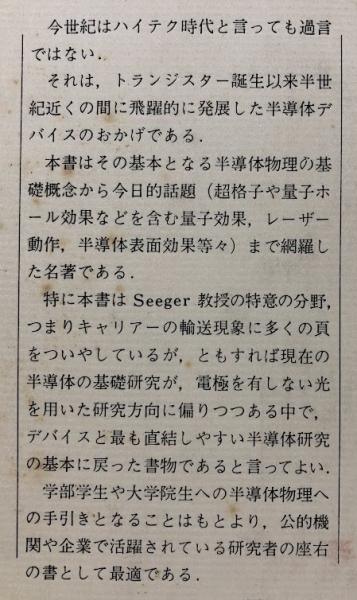 今世紀はハイテク時代と言っても過言
ではない．
それは，トランジスター誕生以来半世
紀近くの間に飛躍的に発展した半導体デ
バイスのおかげである．
本書はその基本となる半導体物理の基
礎概念から今日的話題（超格子や量子ホ
ール効果などを含む量子効果，レーザー
動作，半導体表面効果等々）まで網羅し
た名著である．
特に本書は Seeger 教授の特意の分野，
つまりキャリアーの輸送現象に多くの頁
をついやしているが，ともすれば現在の
半導体の基礎研究が，電極を有しない光
を用いた研究方向に偏りつつある中で，
デバイスと最も直結しやすい半導体研究
の基本に戻った書物であると言ってよい．
学部学生や大学院生への半導体物理へ
の手引きとなることはもとより，公的機
関や企業で活躍されている研究者の座右
の書として最適である．